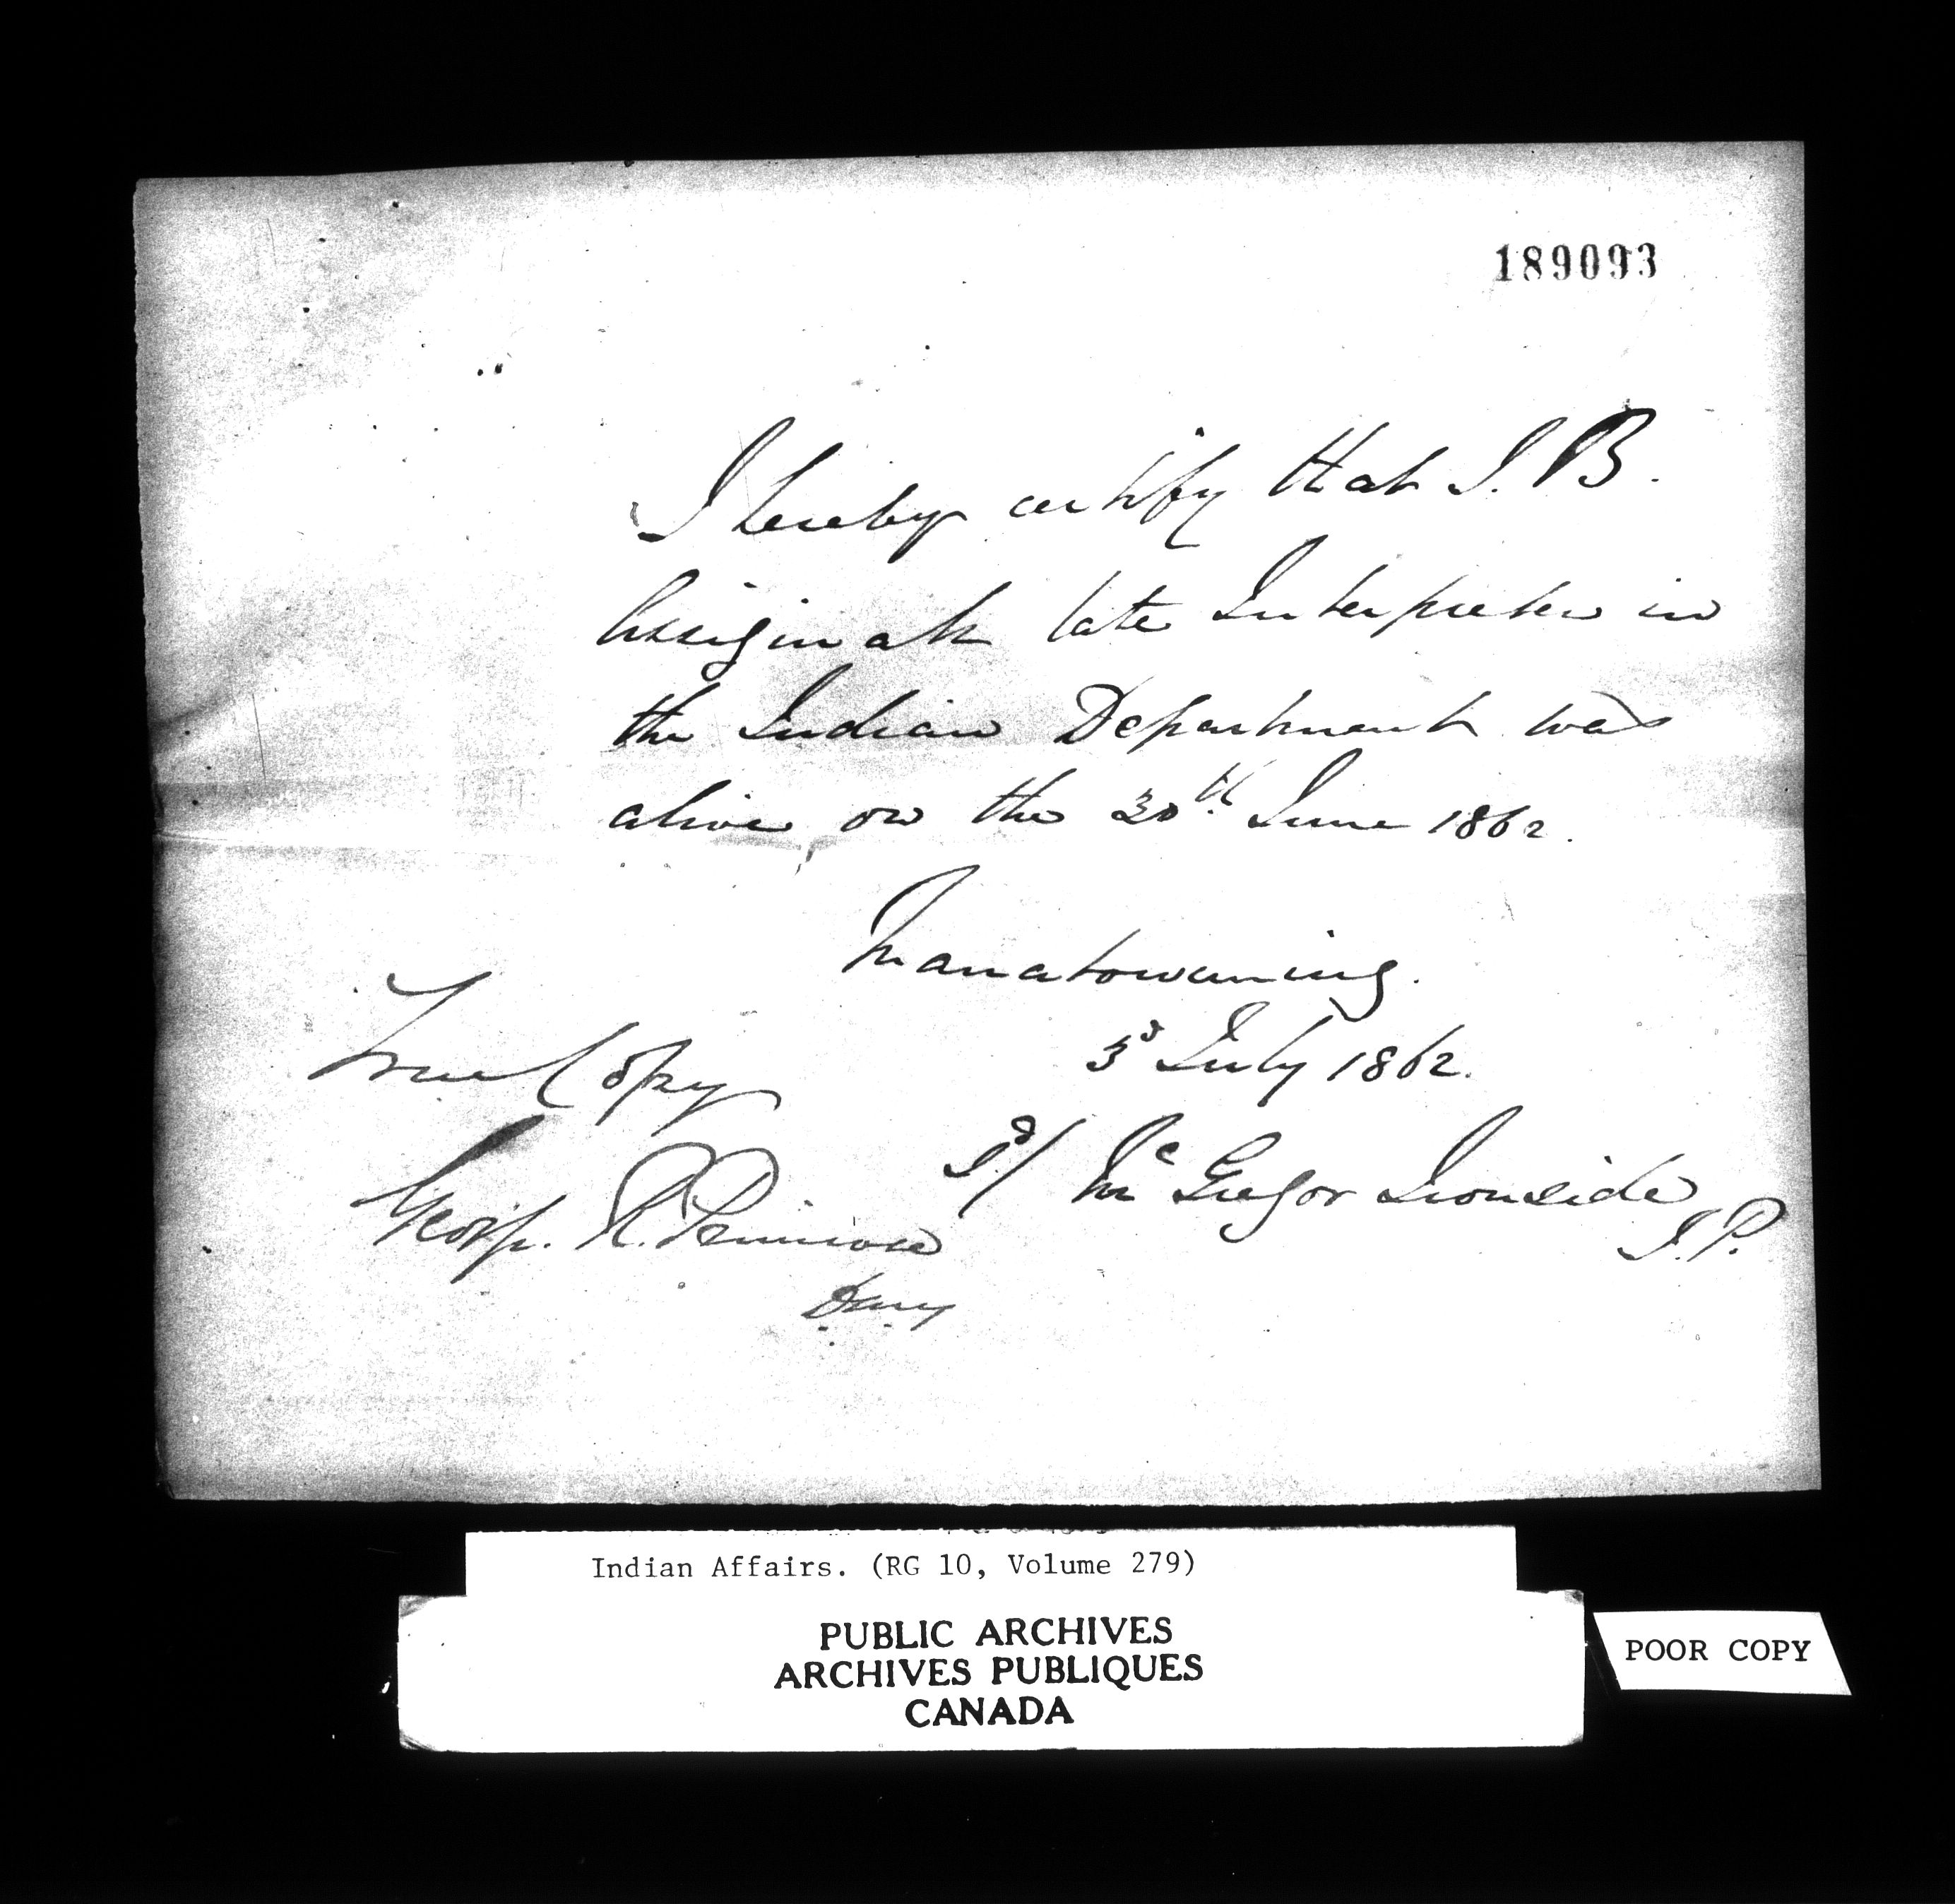 189093
I hereby certify that J. B.
Assiginak late Interpreter in
the Indian Department was
alive on the 30th June 1862.
Manatowaning.
3d July 1862.
True Copy
Sd/ Mc Gregor Ironside
J.P.
R.
Indian Affairs. (RG 10, Volume 279)
PUBLIC ARCHIVES
ARCHIVES PUBLIQUES
CANADA
POOR COPY